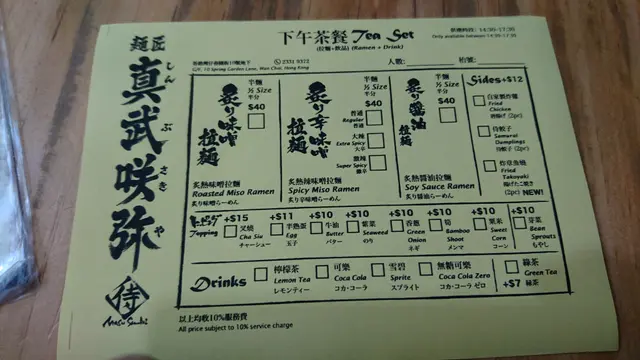 麵匠
真武咲弥
しん ぶ さき や
侍
下午茶餐 Tea Set
(拉麵+飲品) (Ramen + Drink)
供應時段: 14:30-17:30
Only available between 14:30-17:30
G/F, 10 Spring Garden Lane, Wan Chai, Hong Kong
2331 9372
人數:
枱號:
炙り味噌
拉麵
半麵
½ Size
半分
$40
炙熱味噌拉麵
Roasted Miso Ramen
炙り味噌らーめん
炙り辛味噌
拉麵
半麵
½ Size
半分
$40
普通
Regular
普通
大辣
Extra Spicy
大辛
激辣
Super Spicy
激辛
炙熱辣味噌拉麵
Spicy Miso Ramen
炙り辛味噌らーめん
炙り醤油
拉麵
半麵
½ Size
半分
$40
炙熱醬油拉麵
Soy Sauce Ramen
炙り醤油らーめん
Sides +$12
自家製炸雞
Fried
Chicken
唐揚げ (2pc)
侍餃子
Samurai
Dumplings
侍餃子 (2pc)
炸章魚燒
Fried
Takoyaki
揚げたこ焼き
(2pc) NEW!
トッピング
Topping
+$15
叉燒
Cha Siu
チャーシュー
+$11
半熟蛋
Egg
玉子
+$10
牛油
Butter
バター
+$10
紫菜
Seaweed
のり
+$10
香蔥
Green
Onion
ネギ
+$10
筍
Bamboo
Shoot
メンマ
+$10
粟米
Sweet
Corn
コーン
+$10
芽菜
Bean
Sprouts
もやし
Drinks
檸檬茶
Lemon Tea
レモンティー
可樂
Coca Cola
コカ・コーラ
雪碧
Sprite
スプライト
無糖可樂
Coca Cola Zero
コカ・コーラ ゼロ
綠茶
Green Tea
+$7 緑茶
以上均收10%服務費
All price subject to 10% service charge